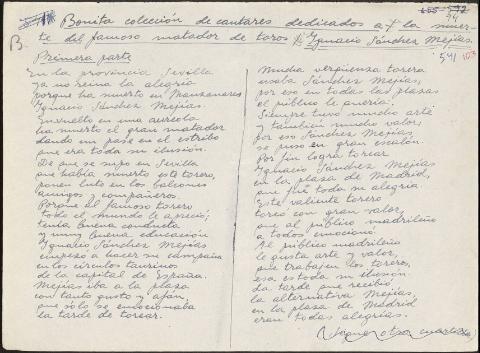 Bonita colección de cantares dedicados a la muer-
te del famoso matador de toros Ignacio Sánchez Mejías.
B.
94
541 103
Primera parte
En la provincia Sevilla
ya no reina la alegría
porque ha muerto en Manzanares
Ignacio Sánchez Mejías.
Envuelto en una aureola
ha muerto el gran matador
dando un pase en el estribo
que era toda su ilusión.
De que se supo en Sevilla
que había muerto este torero,
ponen luto en los balcones
amigos y compañeros.
Porque al famoso torero
todo el mundo le apreció;
tenía buena conducta
y muy buena educación
Ignacio Sánchez Mejías
empezó a hacer su campaña
en los círculos taurinos
de la capital de España.
Mejías iba a la plaza
con tanto gusto y afán,
que sólo se emocionaba
la tarde de torear.
Mucha vergüenza torera
usaba Sánchez Mejías,
por eso en todas las plazas
el público le quería.
Siempre tuvo mucho arte
y también mucho valor,
por eso Sánchez Mejías,
se puso en gran escalón.
Por fin logró torear
Ignacio Sánchez Mejías
en la plaza de Madrid,
que fué toda su alegría
Este valiente torero
toreó con gran valor,
que al público madrileño
a todos emocionó.
Al público madrileño
le gusta arte y valor,
que trabajen los toreros,
esa es toda su ilusión.
La tarde que recibió
la alternativa Mejías,
en la plaza de Madrid
eran todas alegrías.
otra cuartilla)